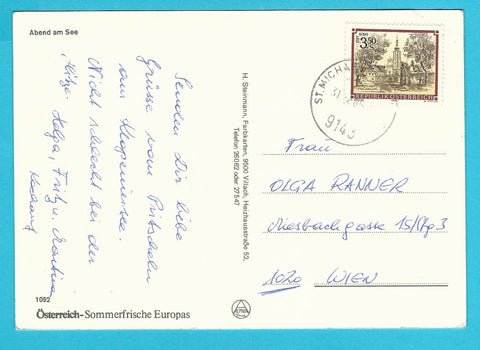 Abend am See
Senden Dir liebe
Grüsse vom Pritscheln
am Klopeinersee.
Nicht schlecht bei der
Hitze. Helga, Fritz u. Martina
1092
Österreich-Sommerfrische Europas
H. Steinmann, Farbkarten, 9500 Villach, Heizhausstraße 52,
Telefon 26162 oder 27547
S 3.50
REPUBLIK ÖSTERREICH
ST. MICHA
9143
Frau
OLGA RANNER
Miesbachgasse 15/Stg 3
1020 WIEN